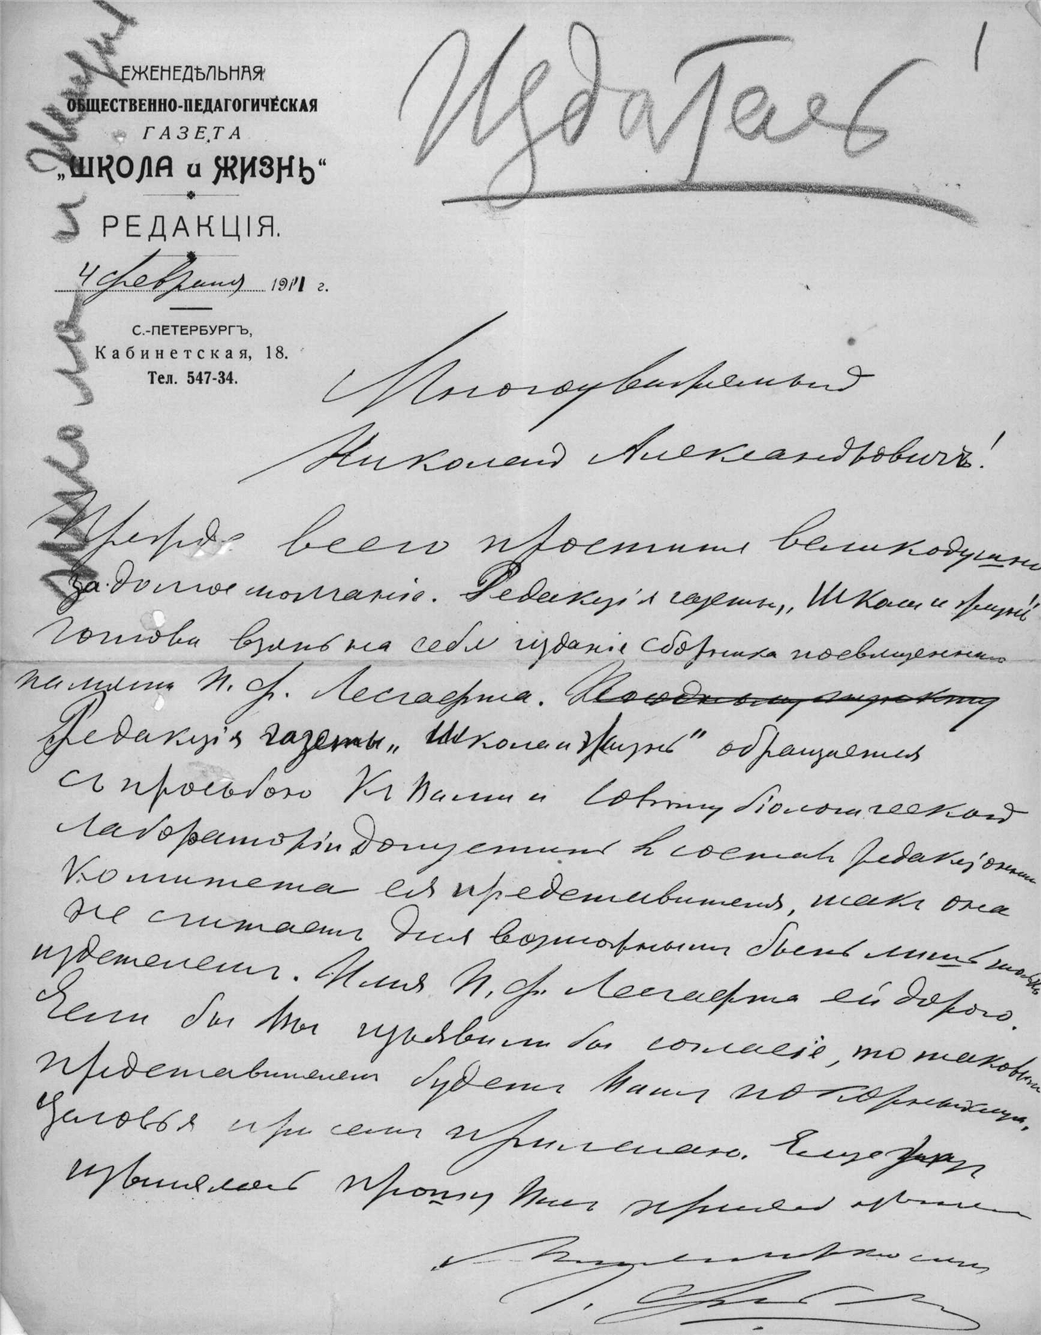 Издатель
Школа и Жизнь
ЕЖЕНЕДѢЛЬНАЯ
ОБЩЕСТВЕННО-ПЕДАГОГИЧЕСКАЯ
ГАЗЕТА
„ШКОЛА и ЖИЗНЬ“
РЕДАКЦІЯ.
4 февраля 1911 г.
С.-ПЕТЕРБУРГЪ,
Кабинетская, 18.
Тел. 547-34.
Многоуважаемый
Николай Александровичъ!
Прежде всего простите великодушно
за долгое молчаніе. Редакція газеты „Школа и жизнь“
готова взять на себя изданіе сборника посвященнаго
памяти П. Ф. Лесгафта.
Редакція газеты „Школа и Жизнь“ обращается
съ просьбою къ Вамъ и Совѣту біологической
лабораторіи допустить въ составъ редакціоннаго
комитета ея представителя, такъ она
не считаетъ для возможнымъ быть лишь только
издателемъ. Имя П. Ф. Лесгафта ей дорого.
Если бы Вы изъявили бы согласіе, то таковымъ
представителемъ будетъ Вашъ покорнѣйшій.
Условья при семъ прилагаю. Еще разъ
извиняясь прошу Васъ принять